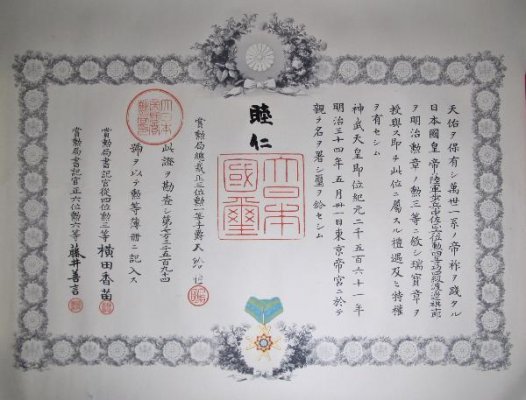 天佑ヲ保有シ萬世一系ノ帝祚ヲ踐タル
日本國皇帝ハ陸軍歩兵中佐正六位勲四等功四級渡邊祺
ヲ明治勲章ノ勲三等ニ敍シ瑞寶章ヲ
授與ス即チ此位ニ屬スル禮遇及ヒ特權
ヲ有セシム
神武天皇即位紀元二千五百六十一年
明治三十四年五月卅一日東京帝宮ニ於テ
親ラ名ヲ署シ璽ヲ鈐セシム
睦仁
大日本國璽
賞勲局總裁正三位勲一等子爵大給恒
此證ヲ勘査シ第
號ヲ以テ勲等簿冊ニ記入ス
賞勲局書記官從四位勲三等横田香苗
賞勲局書記官正六位勲六等藤井善言